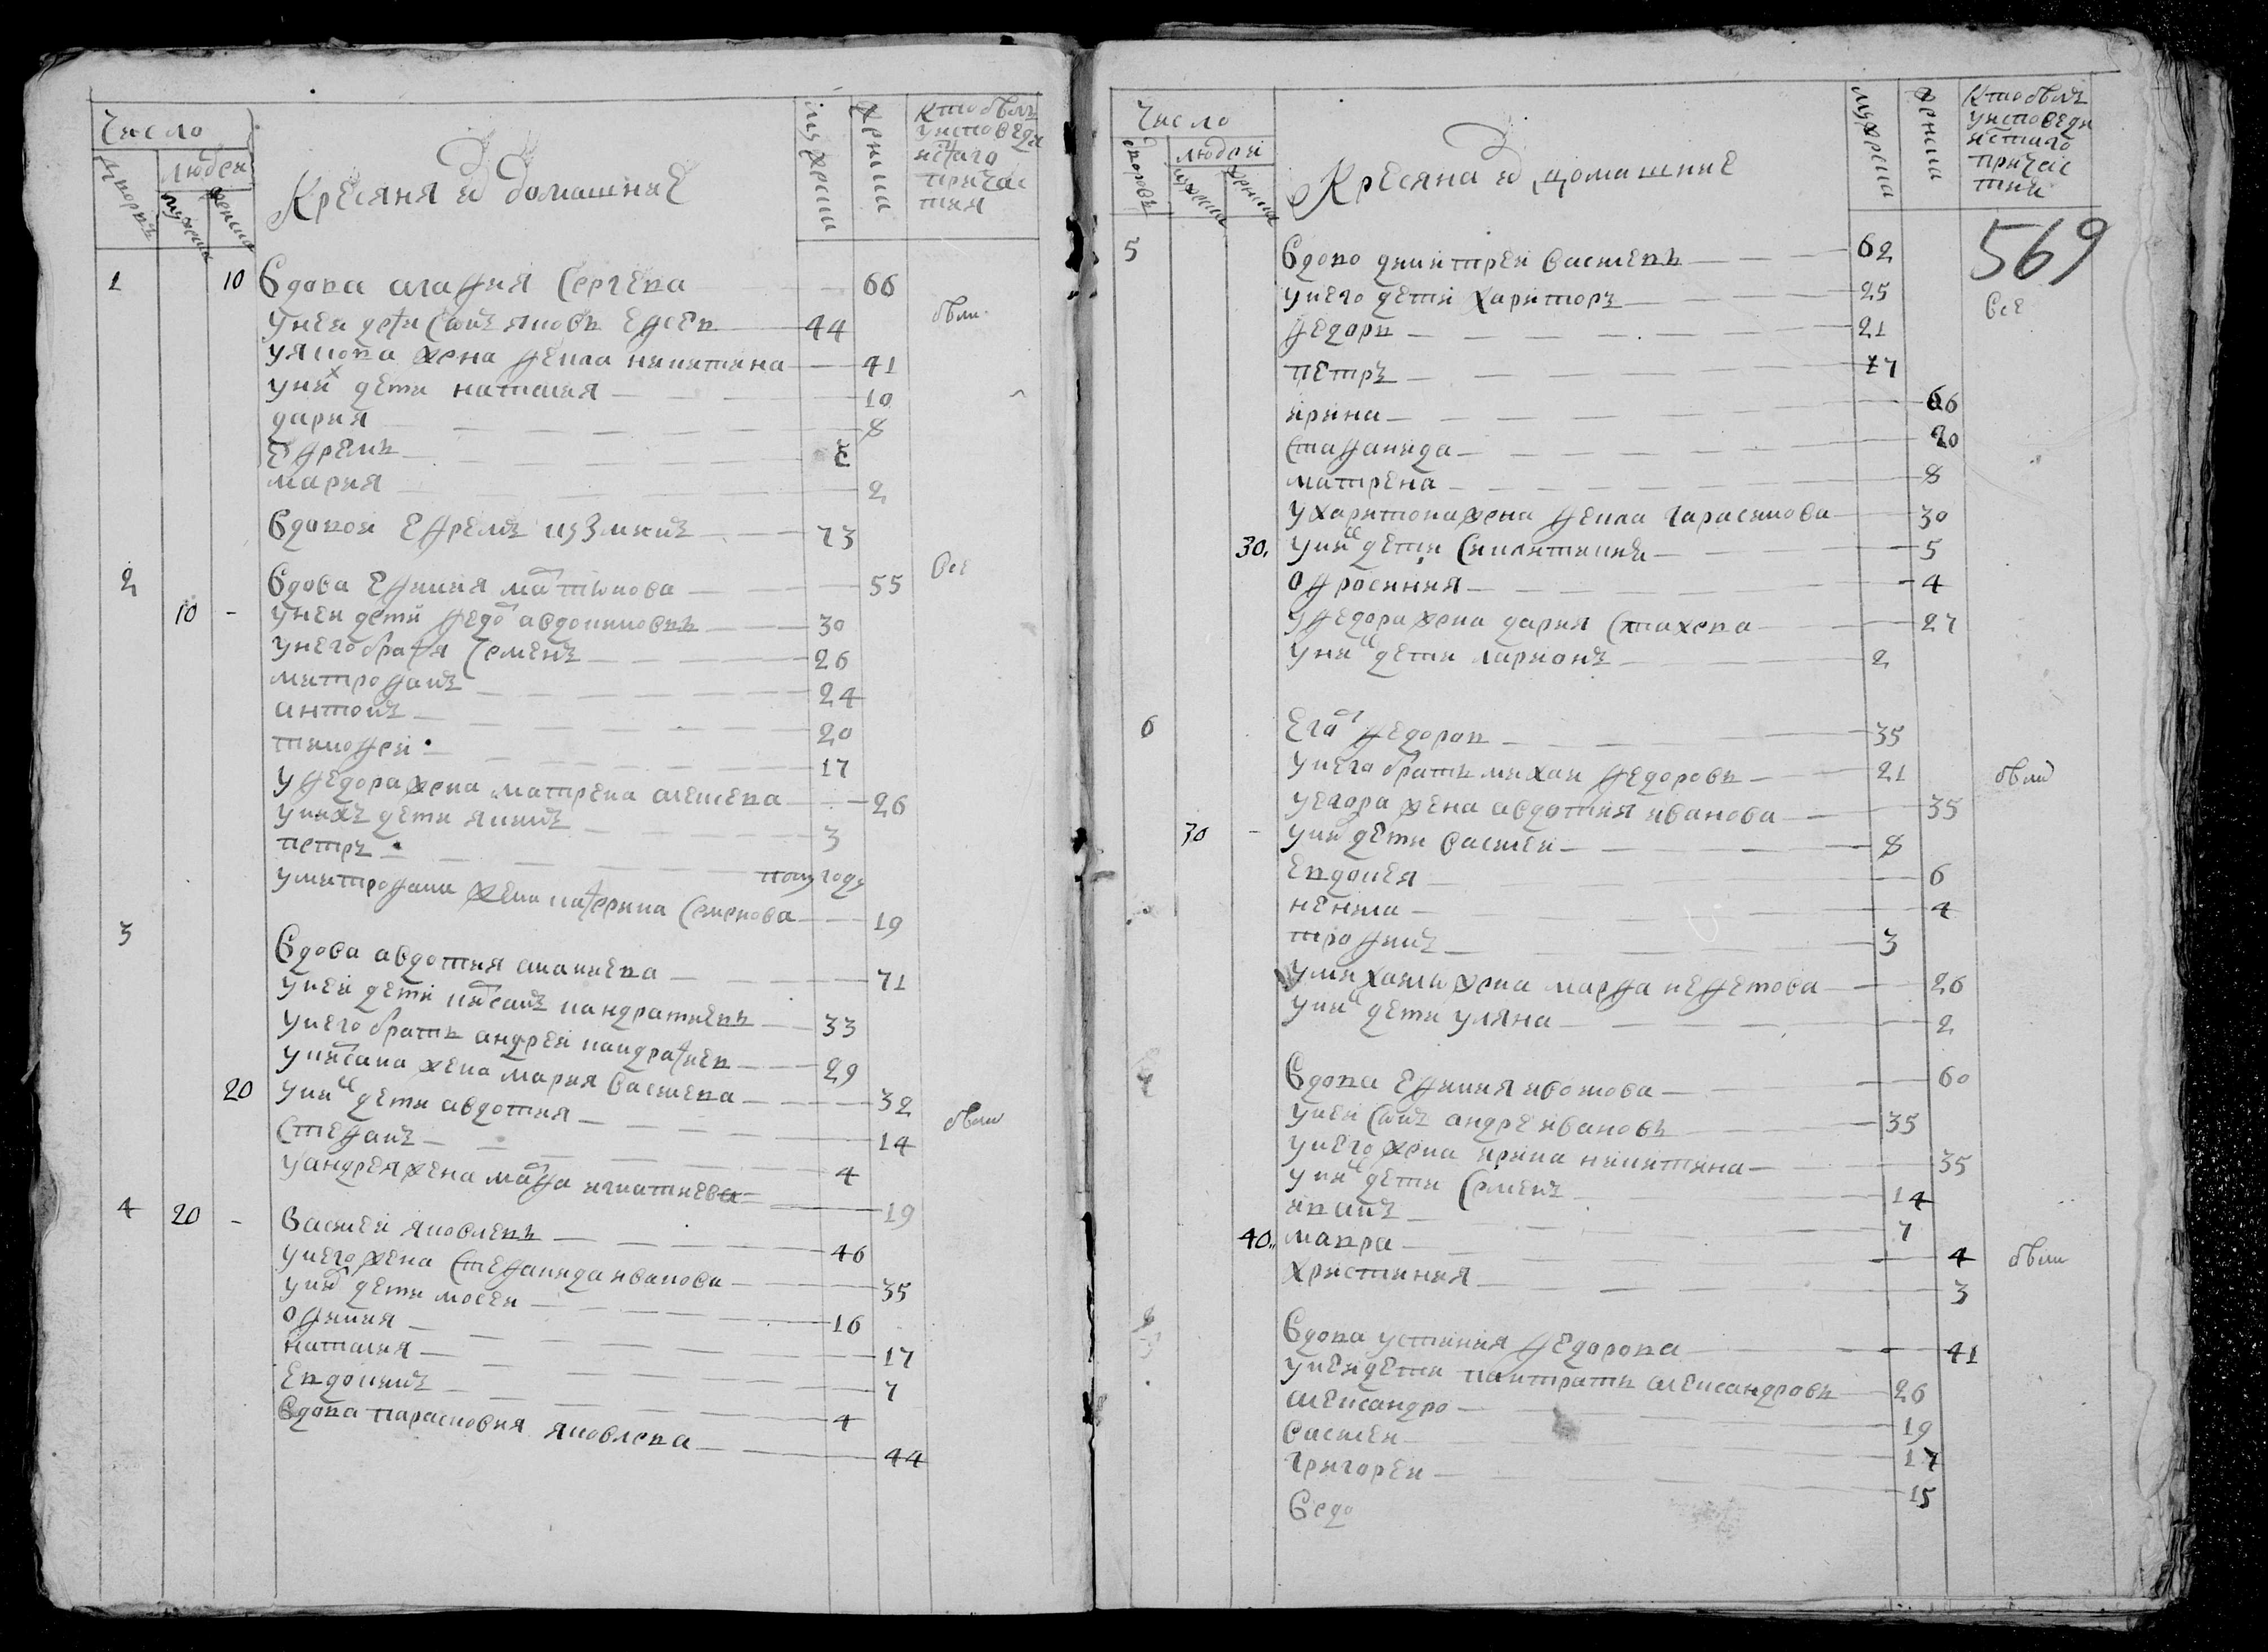 Число
Дворовъ
людей
мужеска
женска
Кресяня и домашние
мужеска
женска
Кто былъ
уисповеди
истаго
причас
тия
1 10 Вдова агафия Сергеева 66
унея дети Сынъ яковъ Евсев 44 были
уякова жена фекла никитина 41
уних дети наталия 10
дария 8
Ефремъ
мария 2
Вдовой Ефремъ кузминъ 73
2 Вдова Ефимия мартинова 55 все
10 унеи дети федор авдокимовъ 30
унего братя Семенъ 26
митрофанъ 24
антонъ 20
тимофеи 17
уфедора жена матрена алексеева 26
унихъ дети якимъ 3
петръ полугоду
умитрофана жена катерина Семенова 19
3 Вдова авдотия ананиева 71
унеи дети кирсанъ кандратиевъ 33
унего братъ андреи кандратиев 29
укирсана жена мария Василева 32
20 уних дети авдотия 14 были
Стефанъ 4
уандрея жена марфа игнатиева 19
4 20 Василеи яковлевъ 46
унего жена Стефанида иванова 35
уних дети мосеи 16
офимия 17
наталия 7
Евдокимъ 4
Вдова парасковия яковлева 44
Число
дворовъ
людей
мужеска
женска
Кресяна и домашние
мужеска
женска
Кто былъ
уисповеди
истаго
причас
тия
569
5 Вдово дмитреи Василевъ 62
унего дети харитонъ 25 все
федоръ 21
петръ 17
ирина 66
Стафанида 20
матрена 8
ухаритона жена фекла гарасимова 30
30. уних дети 5
офросиния 4
уфедора жена дария Стахева 27
уних дети ларионъ 2
6 Егор федоров 35
унего братъ михаи федоровъ 21 были
уегора жена авдотия иванова 35
30 уних дети Василеи 8
Евдокея 6
ненила 4
трофимъ 3
умихаила жена марфа нефетова 26
уних дети уляна 2
7 Вдова Ефимия 60
унеи Сынъ андре ивановъ 35
унего жена ирина никитина 35
уних дети Семенъ 14
иванъ 7
40. мавра 4 были
христиния 3
8 Вдова устиния федорова 41
унеи дети александровъ 26
александро 19
Василеи 17
Григореи 15
Ведо